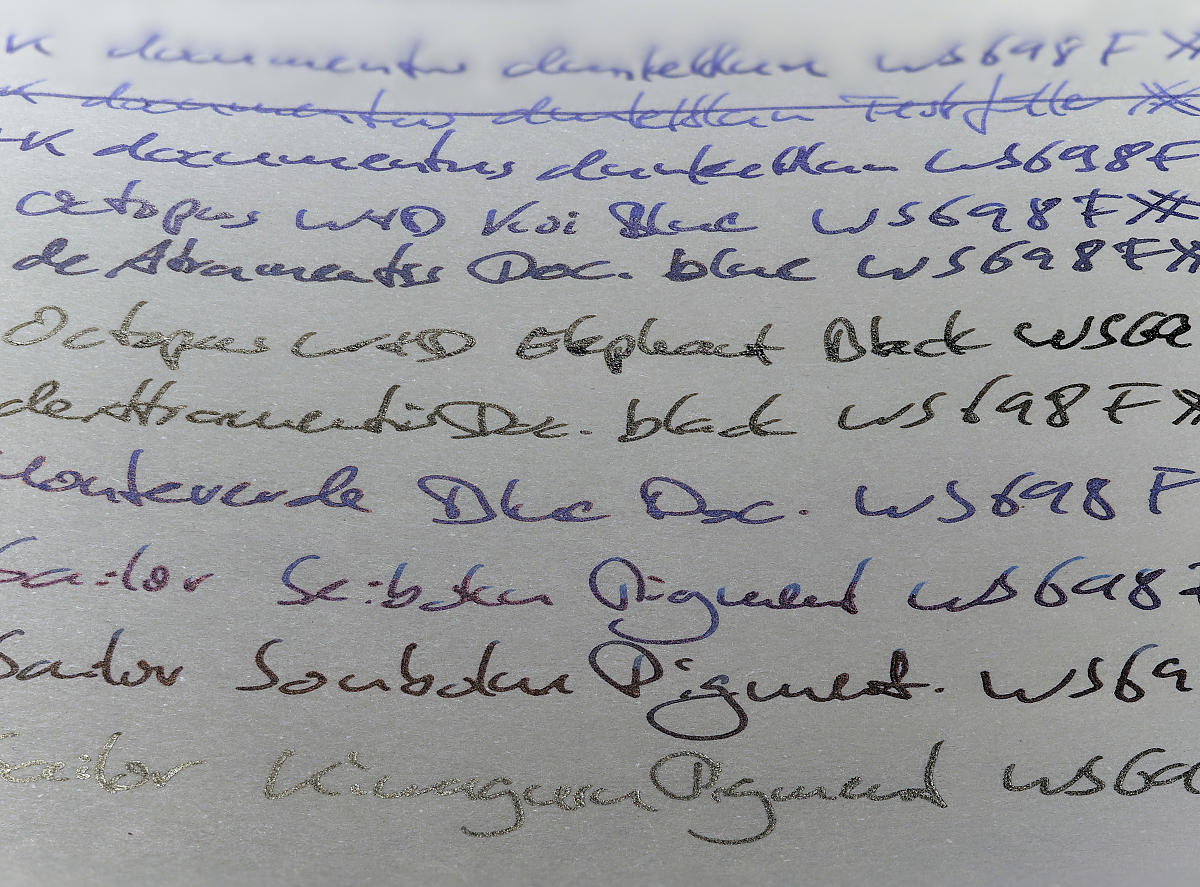 K documentus dunkelblau WS698F XX
K documentus dunkelblau Testfülle XX
K documentus dunkelblau WS698F
Octopus W+D Koi Blue WS698F XX
de Atramentis Doc. blue WS698F XX
Octopus W+D Elephant Black WS69
de Atramentis Doc. black WS698F X
Monteverde Blue Doc. WS698 F
Sailor Seiboku Pigment WS698
Sailor Souboku Pigment. WS69
Sailor Kiwaguro Pigment WS69